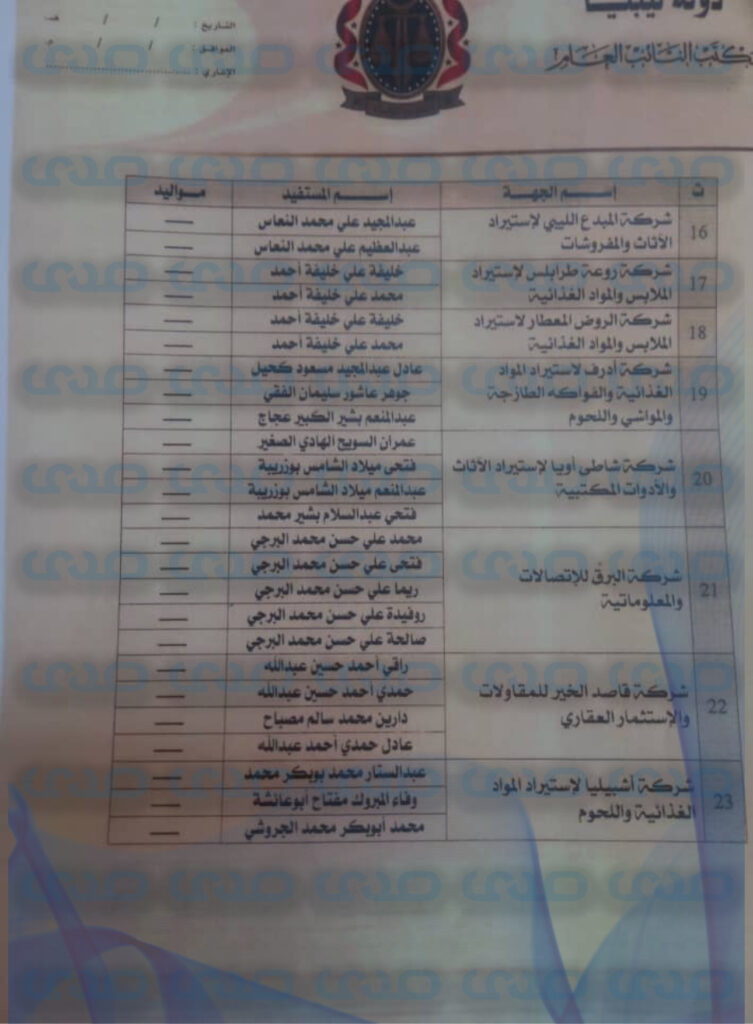 دولة ليبيا
مكتب النائب العام
التاريخ : / / هـ
الموافق : / / م
الإشاري :
ت إسم الجهة إسم المستفيد مواليد
16 شركة المبدع الليبي لإستيراد الأثاث والمفروشات
عبدالمجيد علي محمد النعاس —
عبدالعظيم علي محمد النعاس —
17 شركة روعة طرابلس لإستيراد الملابس والمواد الغذائية
خليفة علي خليفة أحمد —
محمد علي خليفة أحمد —
18 شركة الروض المعطار لاستيراد الملابس والمواد الغذائية
خليفة علي خليفة أحمد —
محمد علي خليفة أحمد —
19 شركة أدرف لاستيراد المواد الغذائية والفواكه الطازجة والمواشي واللحوم
عادل عبدالمجيد مسعود كحيل —
جوهر عاشور سليمان الفقي —
عبدالمنعم بشير الكبير عجاج —
20 شركة شاطى أويا لإستيراد الأثاث والأدوات المكتبية
عمران السويح الهادي الصغير —
فتحى ميلاد الشامس بوزريبة —
عبدالمنعم ميلاد الشامس بوزريبة —
فتحي عبدالسلام بشير محمد —
21 شركة البرق للإتصالات والمعلوماتية
محمد علي حسن محمد البرجي —
فتحى علي حسن محمد البرجي —
ريما علي حسن محمد البرجي —
روفيدة علي حسن محمد البرجي —
صالحة علي حسن محمد البرجي —
22 شركة قاصد الخير للمقاولات والإستثمار العقاري
راقي أحمد حسين عبدالله —
حمدي أحمد حسين عبدالله —
دارين محمد سالم مصباح —
عادل حمدي أحمد عبدالله —
23 شركة أشبيليا لإستيراد المواد الغذائية واللحوم
عبدالستار محمد بوبكر محمد —
وفاء المبروك مفتاح أبوعائشة —
محمد أبوبكر محمد الجروشي —
صدى